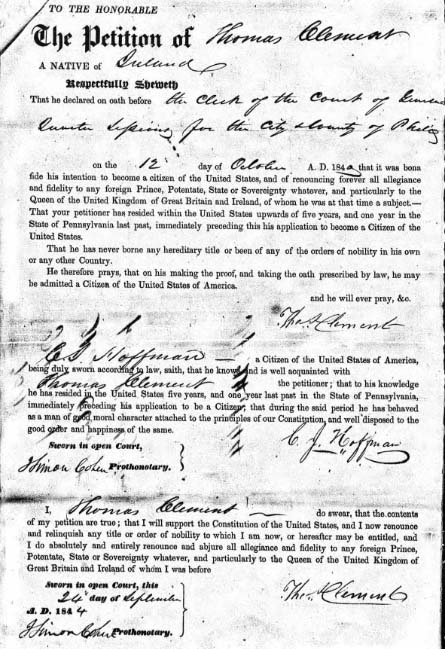 TO THE HONORABLE
The Petition of Thomas Clement
A NATIVE of Ireland
Respectfully Sheweth
That he declared on oath before the Clerk of the Court of General
Quarter Sessions for the City & County of Phila
on the 12 day of October A. D. 184 that it was bona
fide his intention to become a citizen of the United States, and of renouncing forever all allegiance
and fidelity to any foreign Prince, Potentate, State or Sovereignty whatever, and particularly to the
Queen of the United Kingdom of Great Britain and Ireland, of whom he was at that time a subject.—
That your petitioner has resided within the United States upwards of five years, and one year in the
State of Pennsylvania last past, immediately preceding this his application to become a Citizen of the
United States.
That he has never borne any hereditary title or been of any of the orders of nobility in his own
or any other Country.
He therefore prays, that on his making the proof, and taking the oath prescribed by law, he may
be admitted a Citizen of the United States of America.
and he will ever pray, &c.
Thos. Clement
C. J. Hoffman — a Citizen of the United States of America,
being duly sworn according to law, saith, that he knows and is well acquainted with
Thomas Clement the petitioner; that to his knowledge
he has resided in the United States five years, and one year last past in the State of Pennsylvania,
immediately preceding his application to be a Citizen; that during the said period he has behaved
as a man of good moral character attached to the principles of our Constitution, and well disposed to the
good order and happiness of the same.
Sworn in open Court,
C. J. Hoffman
Simon Prothonotary.
I, Thomas Clement — do swear, that the contents
of my petition are true; that I will support the Constitution of the United States, and I now renounce
and relinquish any title or order of nobility to which I am now, or hereafter may be entitled, and
I do absolutely and entirely renounce and abjure all allegiance and fidelity to any foreign Prince,
Potentate, State or Sovereignty whatever, and particularly to the Queen of the United Kingdom of
Great Britain and Ireland of whom I was before
Sworn in open Court, this
24 day of September
A. D. 1844
Thos. Clement
Simon Prothonotary.